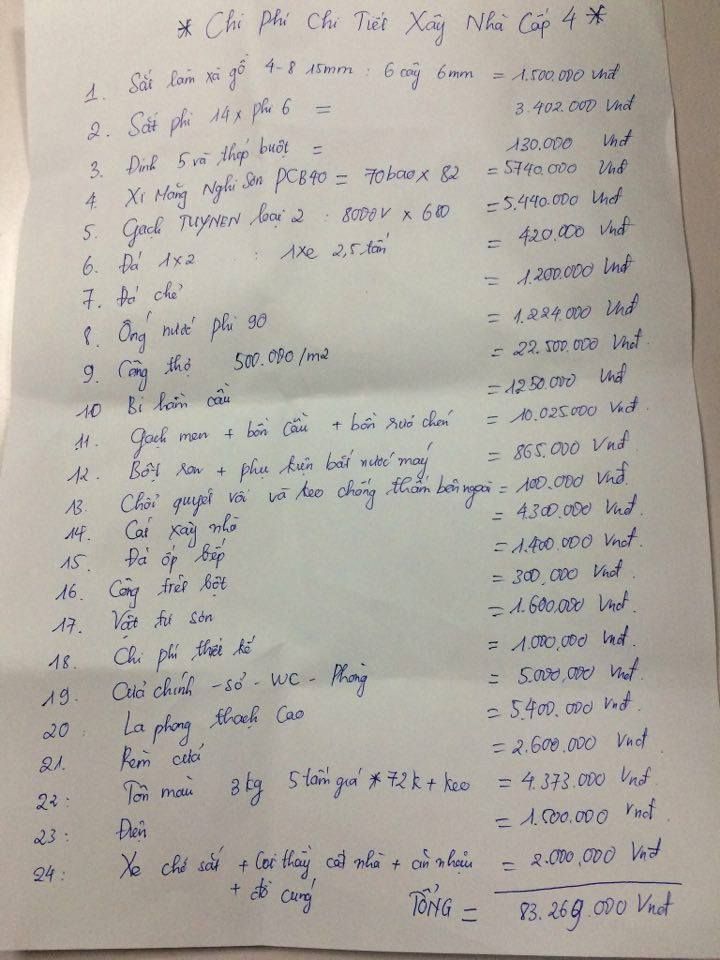 * Chi Phí Chi Tiết Xây Nhà Cấp 4 *
1. Sắt làm xà gồ 4-8 15mm : 6 cây 6mm = 1.500.000 Vnđ
2. Sắt phi 14 x phi 6 = 3.402.000 Vnđ
3. Đinh 5 và thép buột = 130.000 Vnđ
4. Xi Măng Nghi Sơn PCB40 = 70 bao x 82 = 5740.000 Vnđ
5. Gạch TUYNEN loại 2 : 8000V x 680 = 5.440.000 Vnđ
6. Đá 1x2 : 1 xe 2,5 tấn = 420.000 Vnđ
7. Đá chẻ = 1.200.000 Vnđ
8. Ống nước phi 90 = 1.224.000 Vnđ
9. Công thợ 500.000/m2 = 22.500.000 Vnđ
10 Bi hầm cầu = 1250.000 Vnđ
11. Gạch men + bồn cầu + bồn rửa chén = 10.025.000 Vnđ
12. Bột sơn + phụ kiện bắt nước máy = 865.000 Vnđ
13. Chổi quyét vôi và keo chống thấm bên ngoài = 100.000 Vnđ.
14. Cát xây nhà = 4.300.000 Vnđ.
15. Đá ốp bếp = 1.400.000 Vnđ.
16. Công trét bột = 300,000 Vnđ.
17. Vật tư sơn = 1.600,000 Vnđ.
18. Chi phí thiết kế = 1.000,000 Vnđ.
19. Cửa chính - sổ - WC - Phòng = 5.000,000 Vnđ.
20 La phong thạch Cao = 5.400.000 Vnđ.
21. Rèm cửa = 2.600.000 Vnđ.
22: Tôn màu 3kg 5 tấm giá * 72k + keo = 4.373.000 Vnđ
23: Điện = 1.500.000 Vnđ.
24: Xe chở sắt + Coi thầy cất nhà + ăn nhậu = 2.000,000 Vnđ
+ đồ cúng
TỔNG = 83.269.000 Vnđ